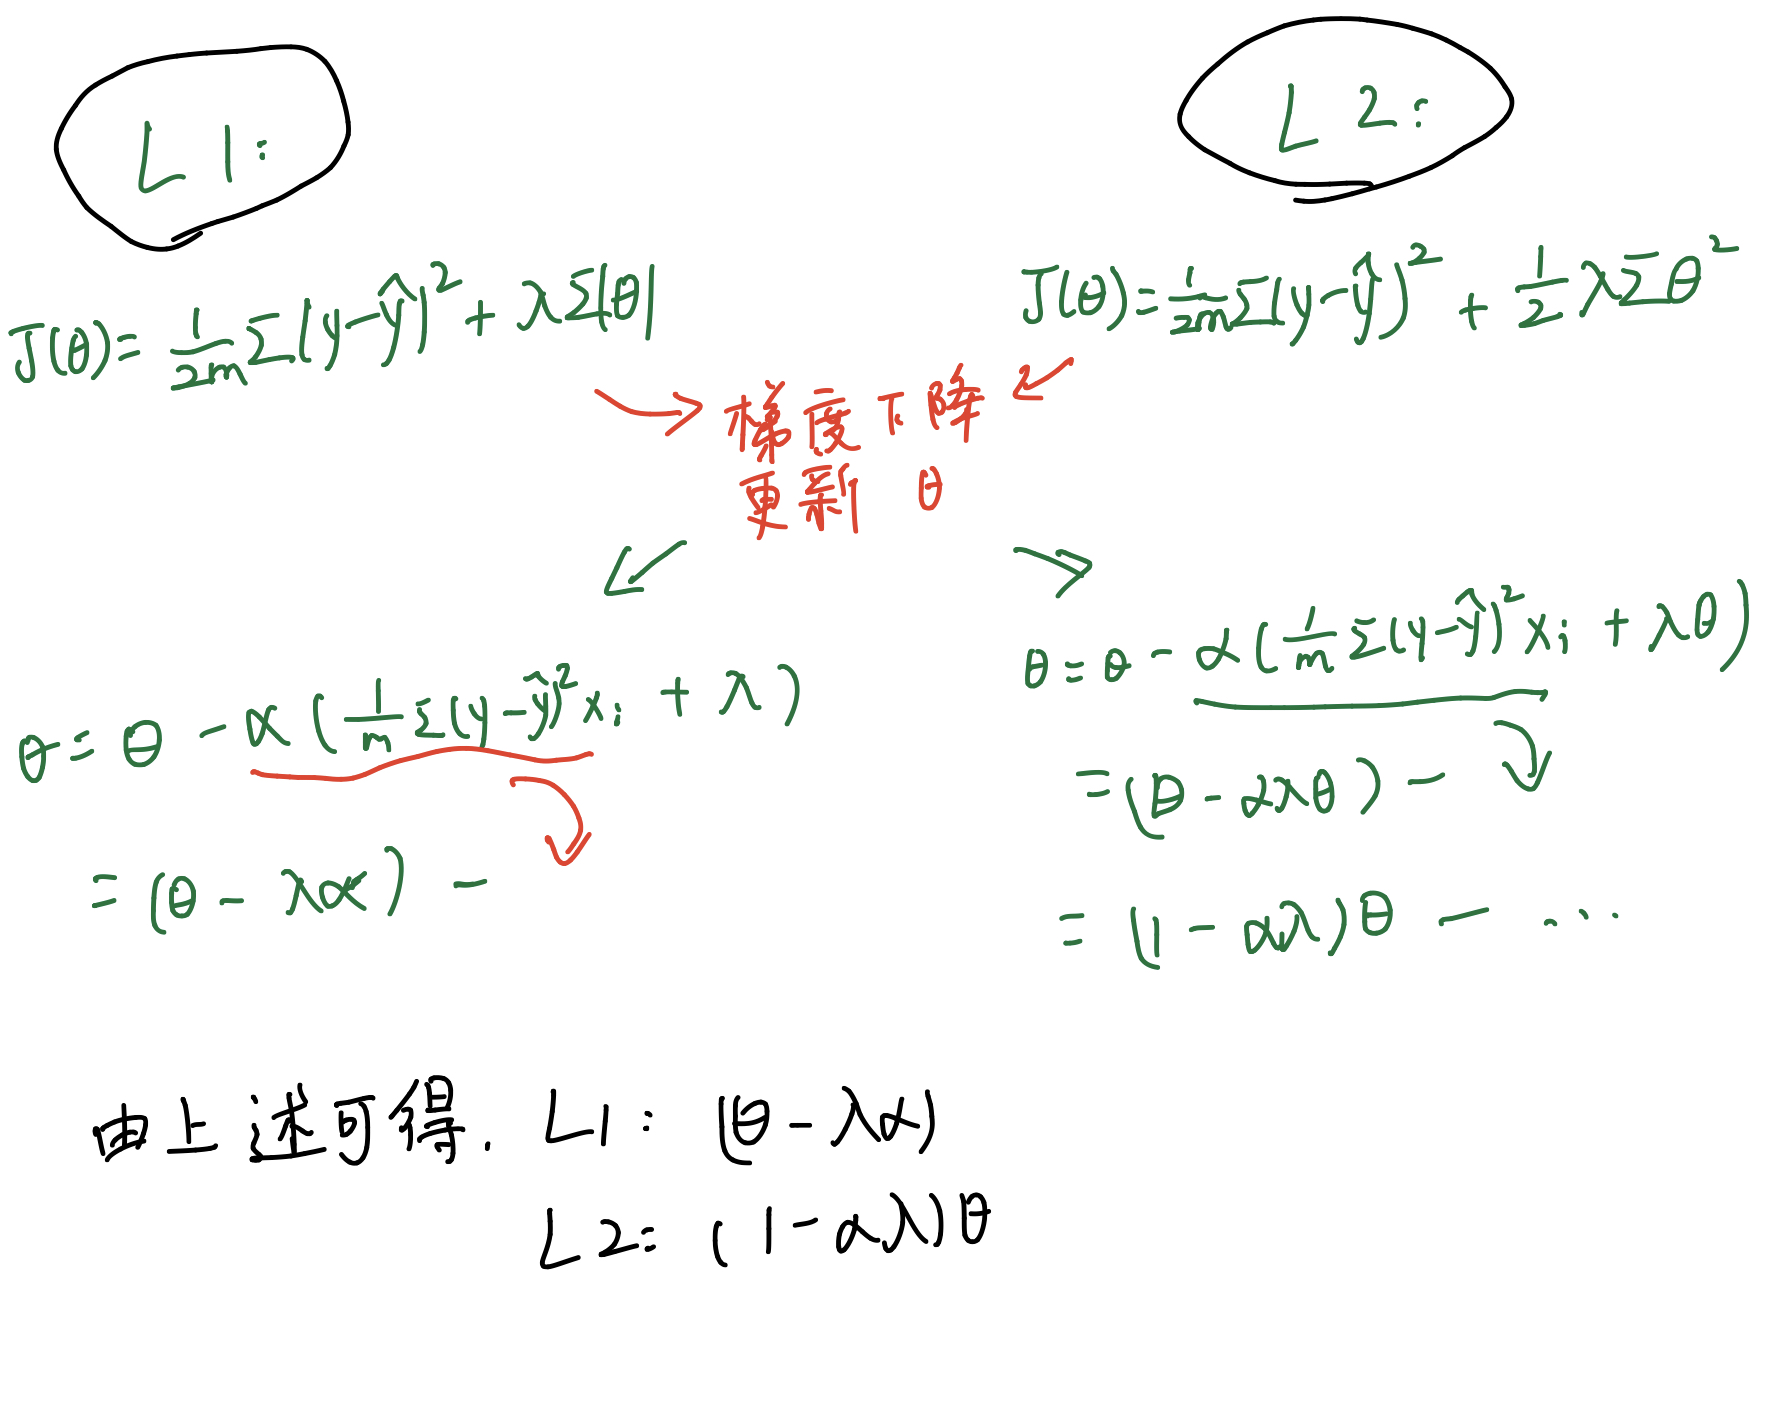 L1:
J(θ)= 1/2m Σ(y-ŷ)² + λΣ|θ|
L2:
J(θ)= 1/2m Σ(y-ŷ)² + 1/2 λΣθ²
梯度下降
更新 θ
θ = θ - α(1/m Σ(y-ŷ)² xᵢ + λ)
= (θ - λα) -
θ = θ - α(1/m Σ(y-ŷ)² xᵢ + λθ)
= (θ - αλθ) -
= (1 - αλ)θ - ...
由上述可得. L1: (θ - λα)
L2: (1 - αλ)θ